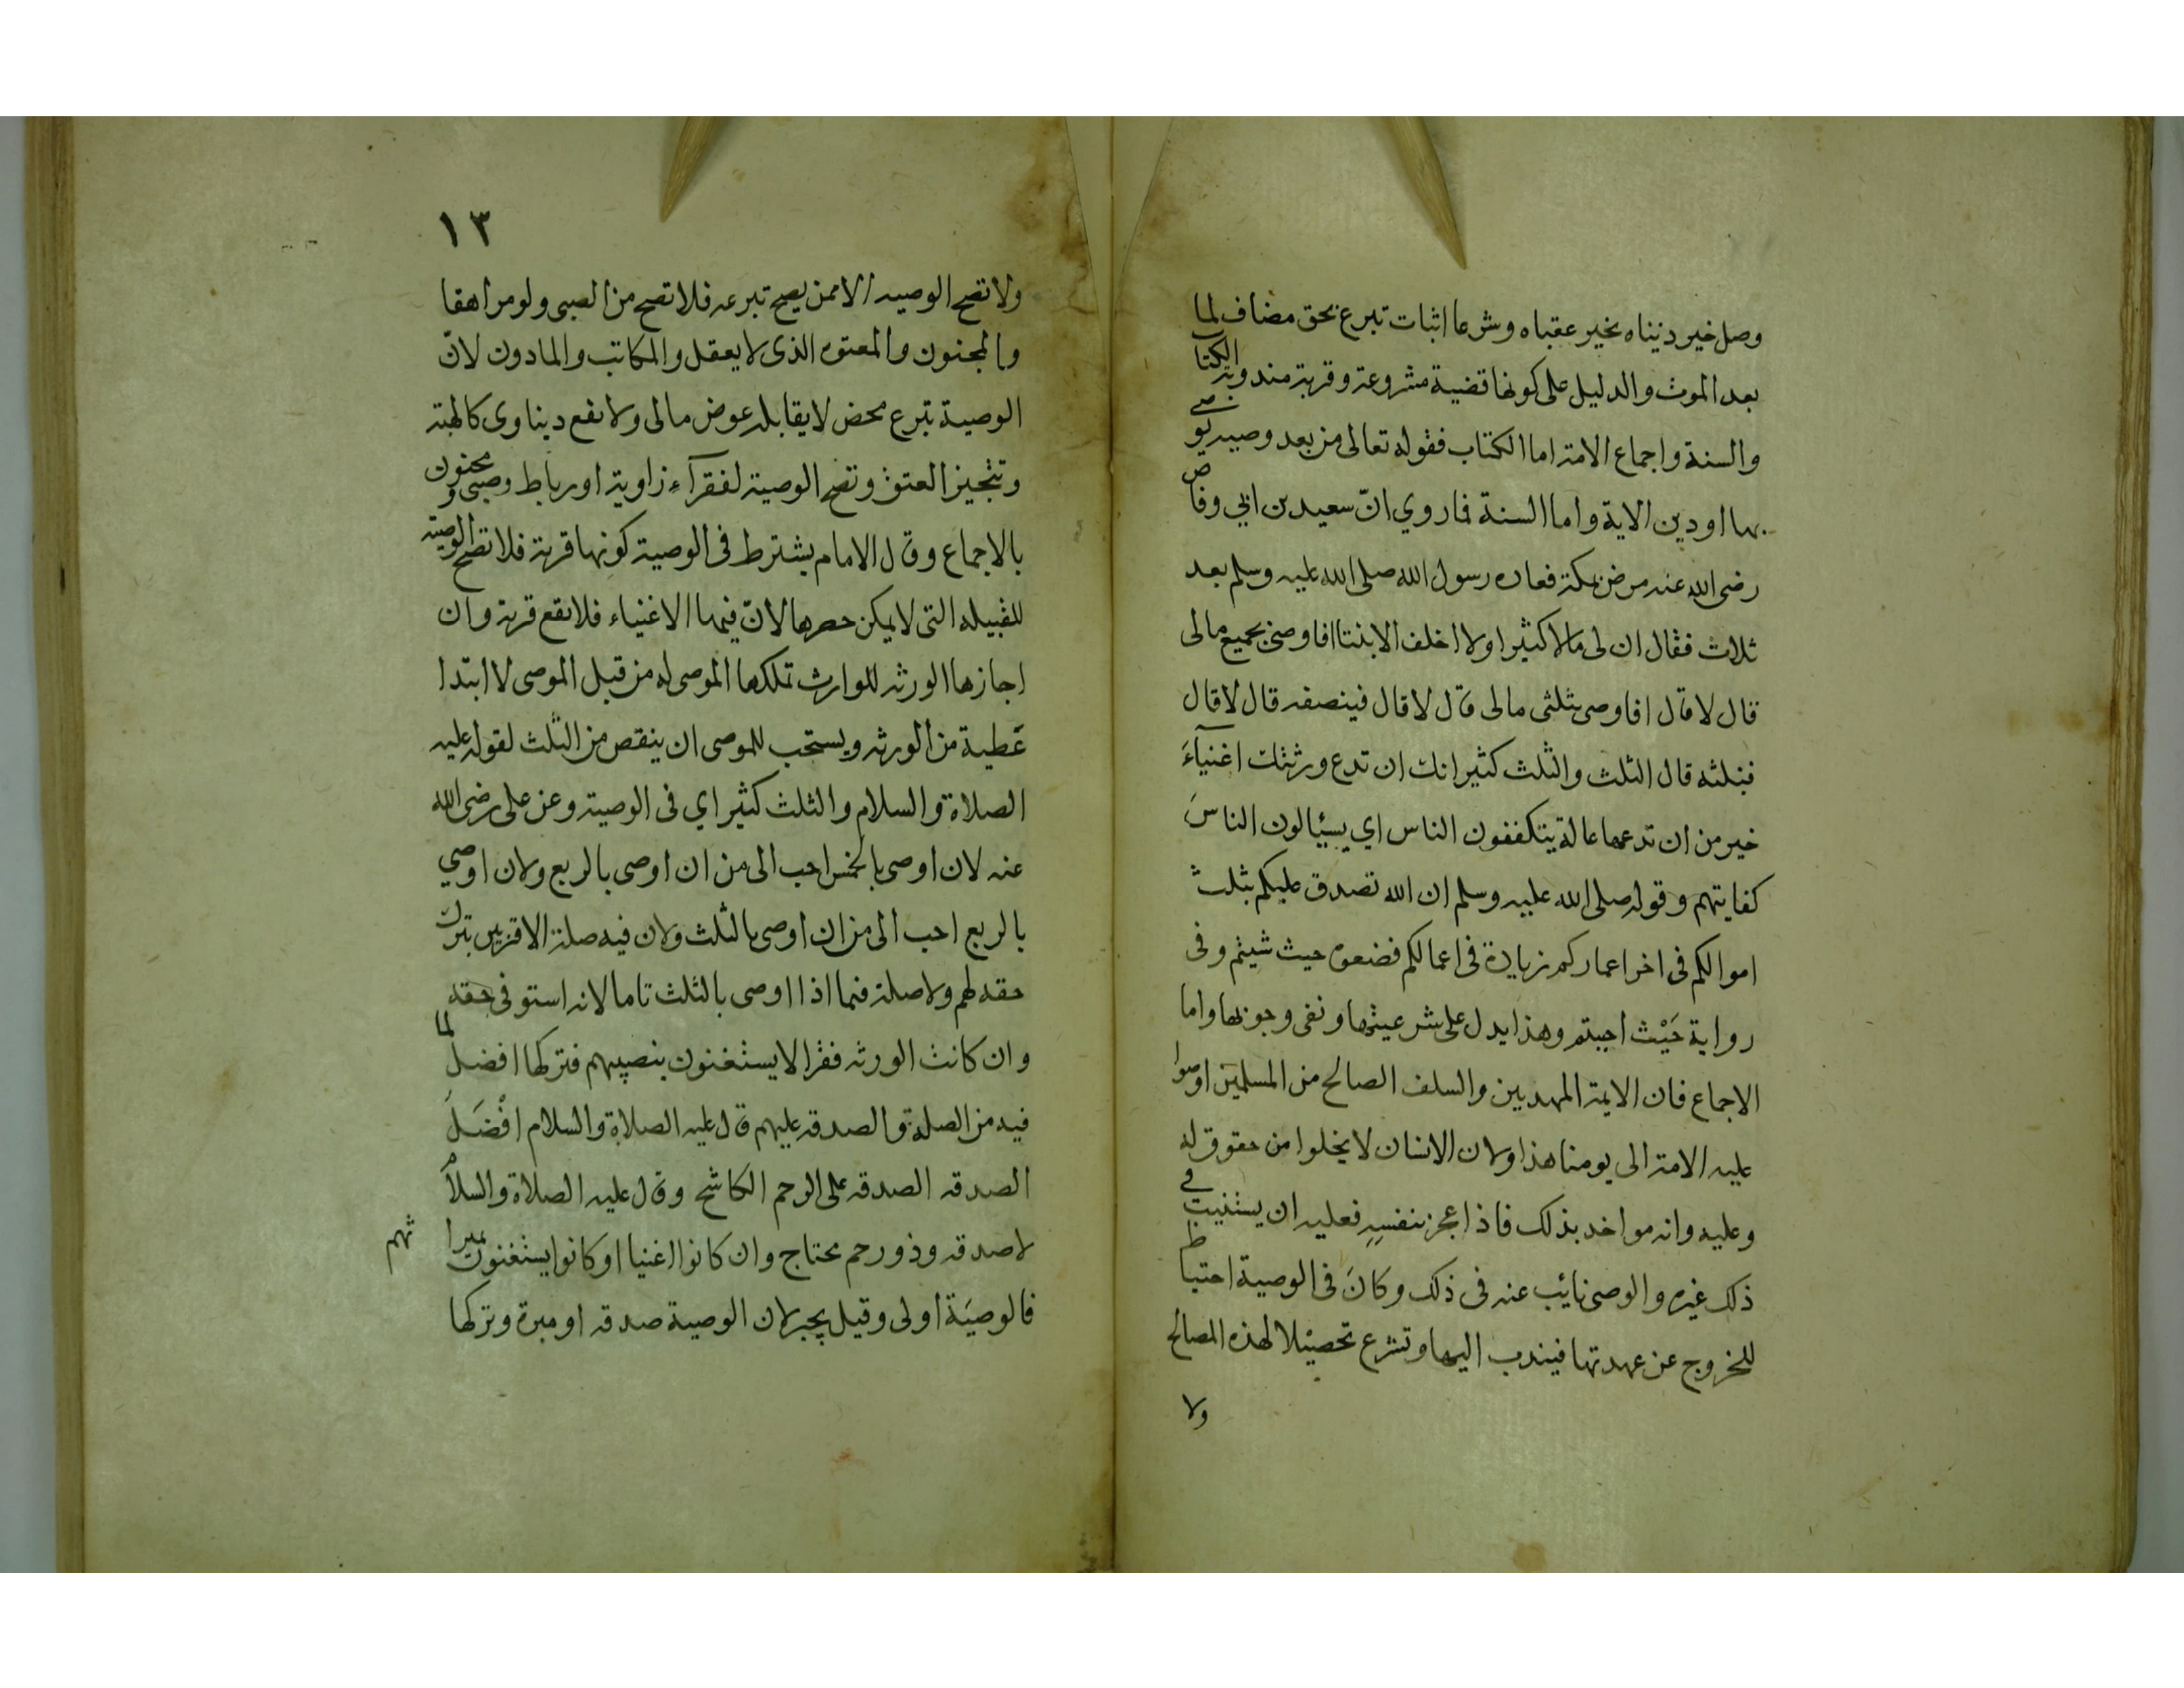 وصل خير دنيناه بخير عقباه وشرعا اثبات تبرع بحق مضاف لما
بعد الموت والدليل على كونها قضية مشروعة وقربة مندوبة الكتا
والسنة واجماع الامة اما الكتاب فقوله تعالى من بعد وصيه يوصى
بها اودين الاية واما السنة فما روي انّ سعيد بن ابي وقاص
رضى الله عنه مرض بمكة فعاده رسول الله صلى الله عليه وسلم بعد
ثلاث فقال ان لى مالا كثيرا ولا اخلف الا بنتا افاوصى بجميع مالى
قال لا قال افاوصى بثلثى مالى قال لا قال فبنصفه قال لا قال
فبثلثه قال الثلث والثلث كثير انك ان تدع ورثتك اغنيآءَ
خير من ان تدعهم عالة يتكففون الناس اي يسئالون الناسَ
كفايتهم وقوله صلى الله عليه وسلم ان الله تصدق عليكم بثلث
اموالكم فى اخر اعماركم زيادة فى اعمالكم فضعوه حيث شيتم وفى
رواية حَيْث احببتم وهذا يدل على شرعيتها ونفى وجوبها واما
الاجماع فان الايمة المهديين والسلف الصالح من المسلمين اوصوا
عليه الامة الى يومنا هذا ولان الانسان لا يخلوا من حقوق له
وعليه وانه مواخد بذلك فاذا عجز بنفسهِ فعليه ان يستنيب فى
ذلك غيره والوصى نائب عنه فى ذلك وكانَ فى الوصية احتياط
للخروج عن عهدتها فيندب اليها وتشرع تحصيلا لهذه المصالح
ولا
١٣
ولا تصح الوصيه الا ممن يصح تبرعه فلا تصح من الصبى ولو مراهقا
والمجنون والمعتوه الذى لا يعقل والمكاتب والمادون لانّ
الوصية تبرع محض لا يقابله عوض مالى ولا نفع ديناوى كالهبة
وتنجيز العتق وتصح الوصية لفقرآء زاوية او رباط وصبى ومجنون
بالاجماع وقال الامام يشترط فى الوصية كونها قربة فلا تصح الوصية
للقبيله التى لا يمكن حصرها لانّ فيها الاغنياء فلا تقع قربة وان
اجازها الورثه للوارث تملكها الموصى له من قبل الموصى لا ابتدا
عَطية من الورثه ويستحب للموصى ان ينقص من الثلث لقوله عليه
الصلاة والسلام والثلث كثير اي فى الوصية وعن على رضى الله
عنه لان اوصى بالخمس احب الى من ان اوصى بالربع ولان اوصي
بالربع احب الى من ان اوصى بالثلث ولان فيه صلة الاقربين بترك
حقه لهم ولا صلة فيما اذا اوصى بالثلث تاما لانه استوفى حقه
وان كانت الورثه فقرا لا يستغنون بنصيبهم فتركها افضل لما
فيه من الصلة والصدقه عليهم قال عليه الصلاة والسلام افْضَلَ
الصدقه الصدقه على الرحم الكاشح وقال عليه الصلاة والسلام
لا صدقه وذو رحم محتاج وان كانوا اغنيا او كانوا يستغنون بميرا
ثهم
فالوصيَة اولى وقيل يجبر لان الوصية صدقه او مبرة وتركها